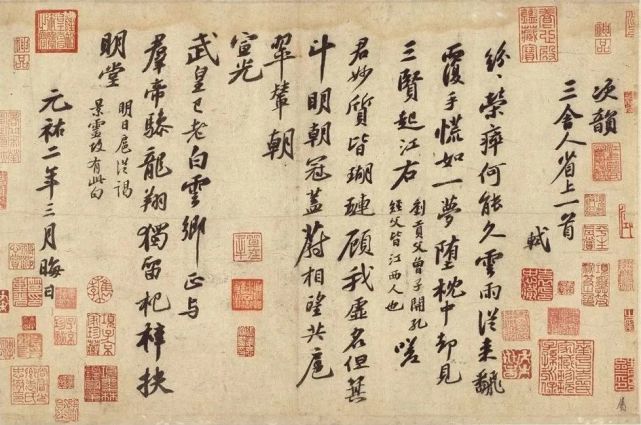 次韻
三舍人省上一首
軾
紛〻榮瘁何能久雲雨從來翻
覆手慌如一夢墮枕中却見
三賢起江右
劉貢父曾子開孔
經父皆江西人也
嗟
君妙質皆瑚璉顧我虛名但箕
斗明朝冠蓋蔚相望共扈
翠輦朝
宣光
武皇已老白雲鄉正与
羣帝驂龍翔獨留杞梓扶
明堂
明日扈從謁
景靈故有此句
元祐二年三月晦日